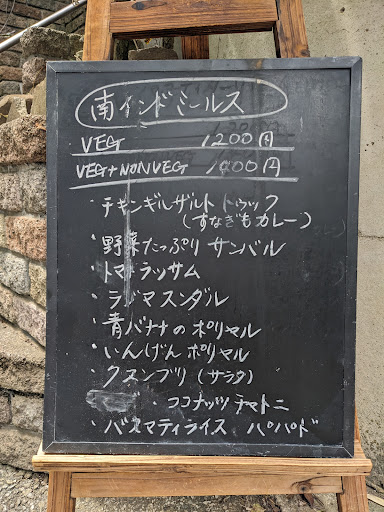 南インドミールス
VEG 1200円
VEG+NONVEG 円
・チキンギルザルト トゥック
(すなぎもカレー)
・野菜たっぷり サンバル
・トマトラッサム
・ラジマスンダル
・青バナナのポリヤル
・いんげんポリヤル
・クスンブリ(サラダ)
ココナッツチャトニ
・バスマティライス パパド